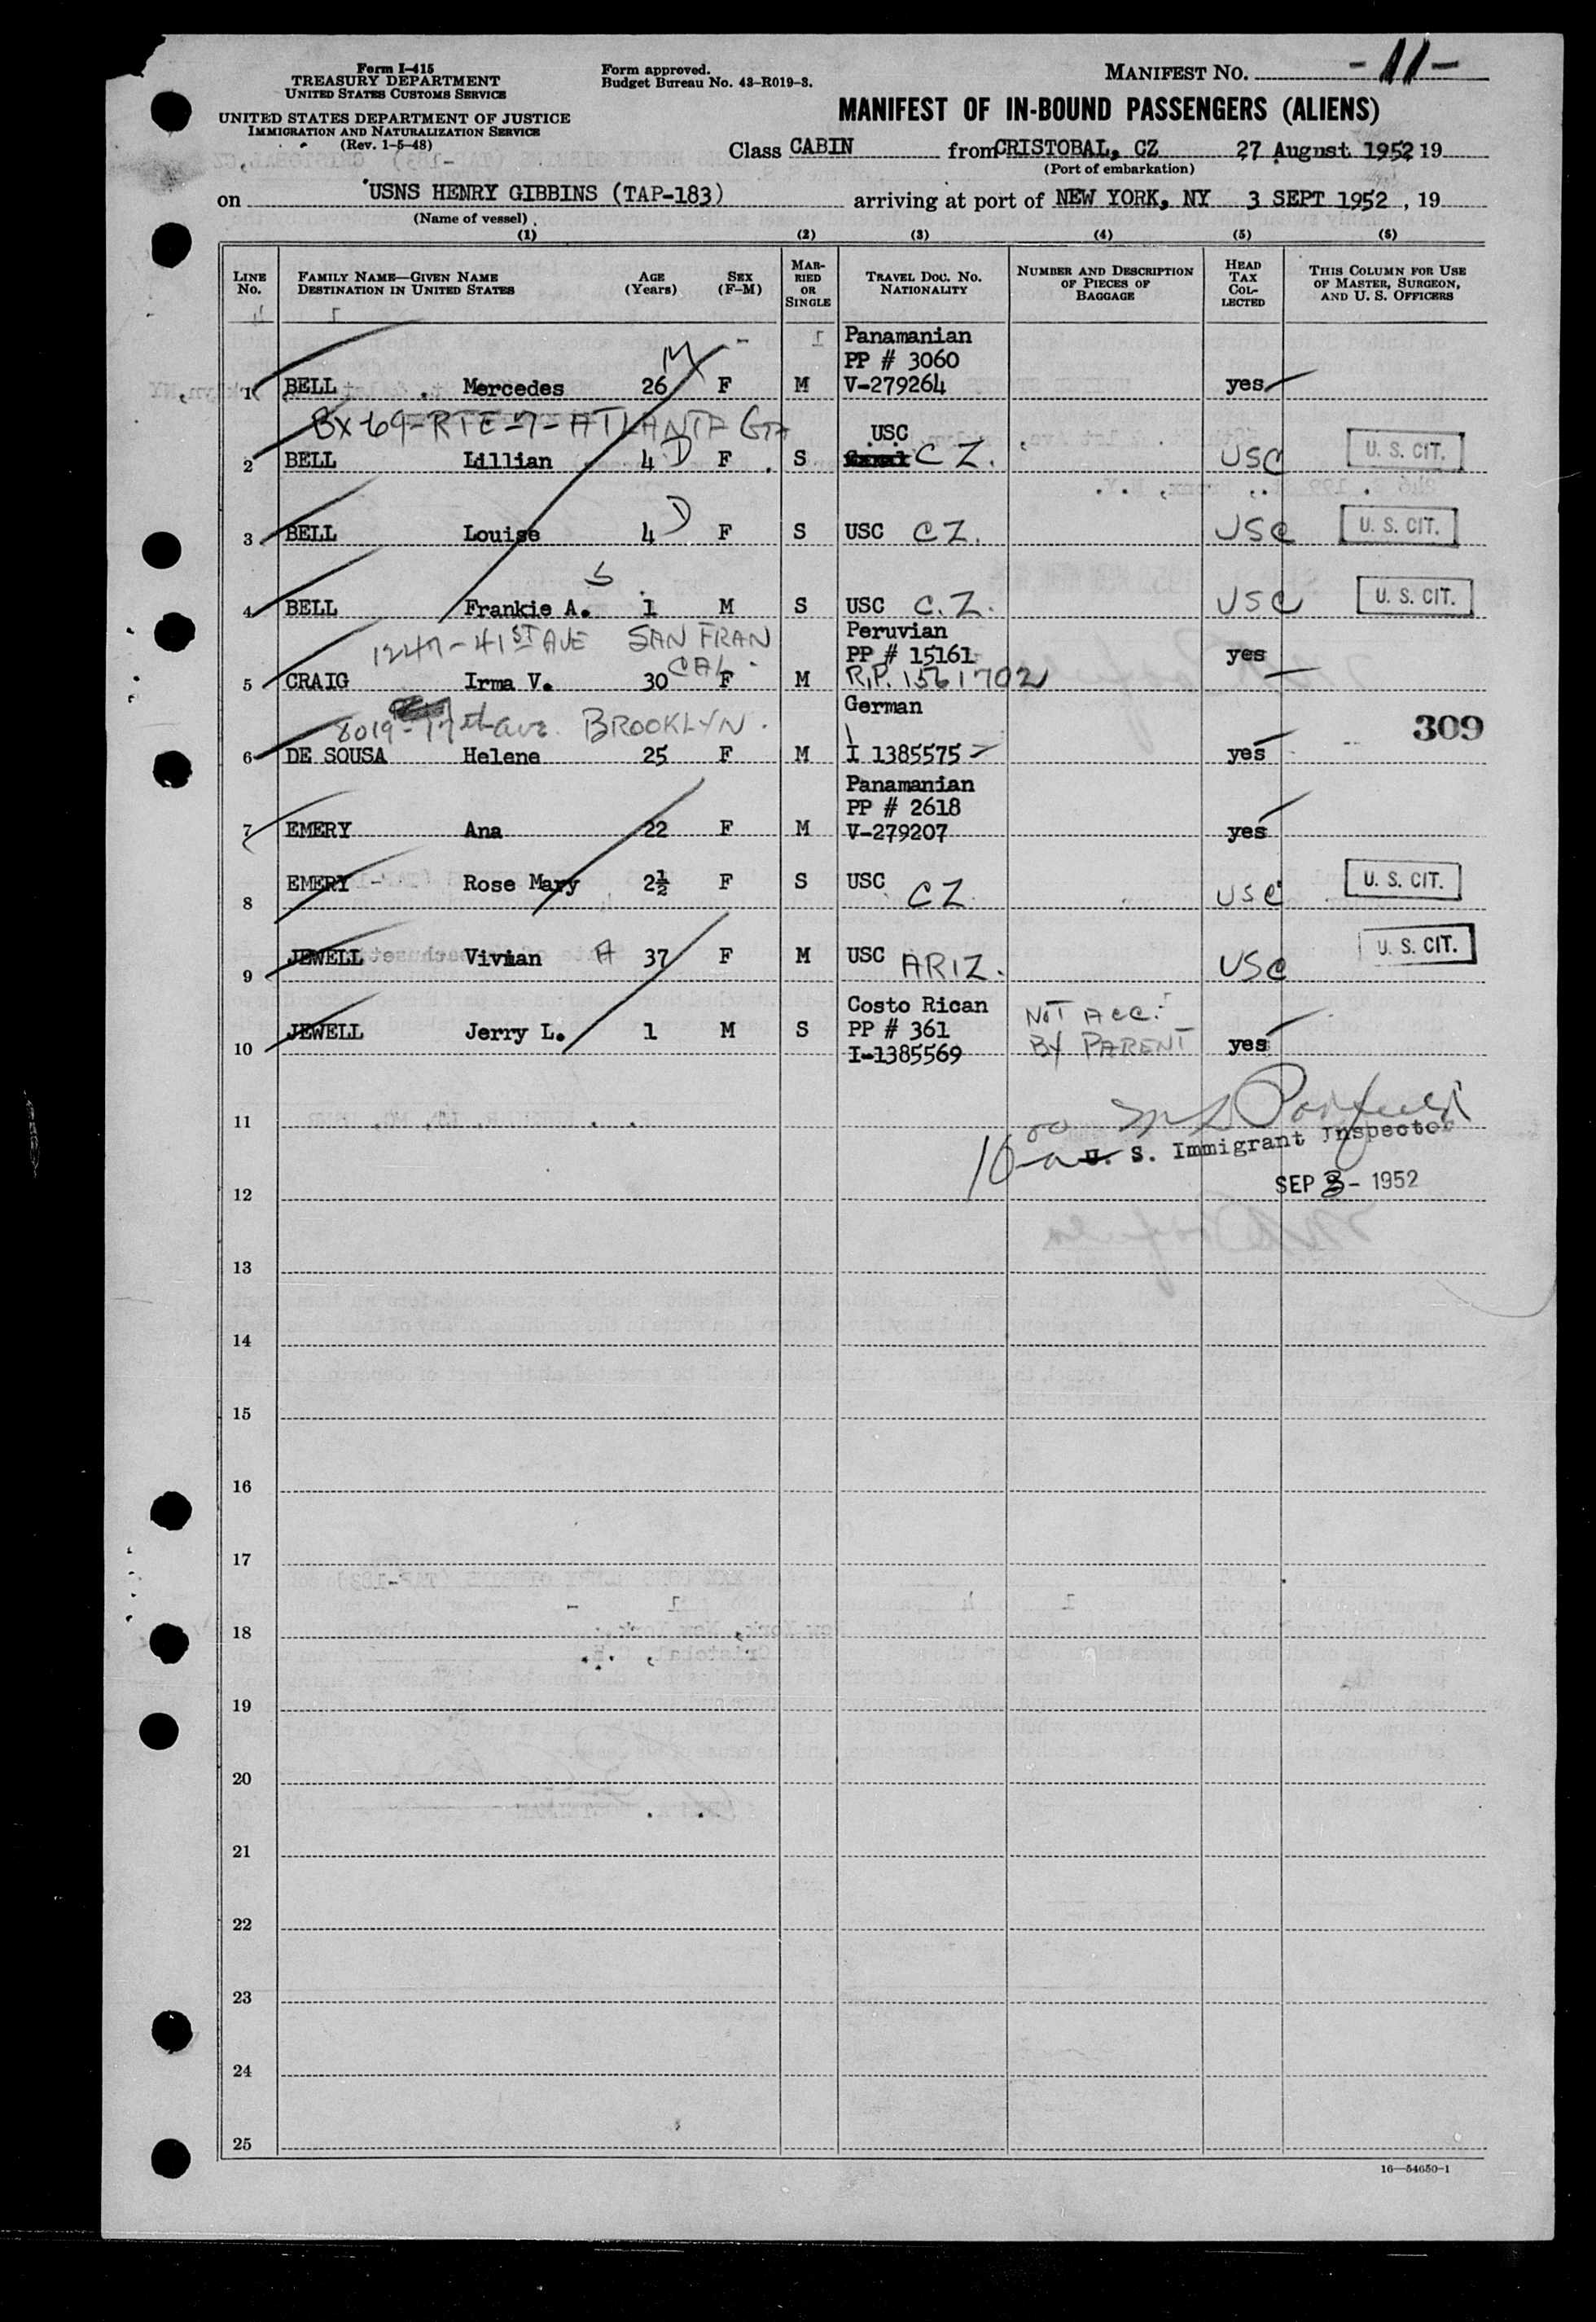 Form I-415
TREASURY DEPARTMENT
UNITED STATES CUSTOMS SERVICE
UNITED STATES DEPARTMENT OF JUSTICE
IMMIGRATION AND NATURALIZATION SERVICE
(Rev. 1-5-48)
Form approved.
Budget Bureau No. 43-R019-3.
MANIFEST NO. -11-
MANIFEST OF IN-BOUND PASSENGERS (ALIENS)
Class CABIN from CRISTOBAL, CZ 27 August 1952 19
(Port of embarkation)
on USNS HENRY GIBBINS (TAP-183) arriving at port of NEW YORK, NY 3 SEPT 1952, 19
(Name of vessel)
(1) (2) (3) (4) (5) (6)
LINE NO. FAMILY NAME—GIVEN NAME DESTINATION IN UNITED STATES AGE (Years) SEX (F-M) MARRIED OR SINGLE TRAVEL DOC. NO. NATIONALITY NUMBER AND DESCRIPTION OF PIECES OF BAGGAGE HEAD TAX COLLECTED THIS COLUMN FOR USE OF MASTER, SURGEON, AND U. S. OFFICERS
Panamanian
M PP # 3060
1 BELL Mercedes 26 F M V-279264 yes
BX 69-RTE-7-ATLANTA GA
USC
2 BELL Lillian 4 D F S CZ. USC U. S. CIT.
3 BELL Louise 4 D F S USC CZ. USC U. S. CIT.
S
4 BELL Frankie A. 1 M S USC C.Z. USC U. S. CIT.
Peruvian
1247-41ST AVE SAN FRAN CAL. PP # 15161 yes
5 CRAIG Irma V. 30 F M R.P. 1561702
German
8019-17th ave. BROOKLYN. 309
6 DE SOUSA Helene 25 F M I 1385575 yes
Panamanian
PP # 2618
7 EMERY Ana 22 F M V-279207 yes
8 EMERY Rose Mary 2½ F S USC CZ USC U. S. CIT.
9 JEWELL Vivian A 37 F M USC ARIZ. USC U. S. CIT.
Costo Rican NOT ACC.
10 JEWELL Jerry L. 1 M S PP # 361 BY PARENT yes
I-1385569
11
U. S. Immigrant Inspector
12 SEP 3- 1952
13
14
15
16
17
18
19
20
21
22
23
24
25
16—54650-1